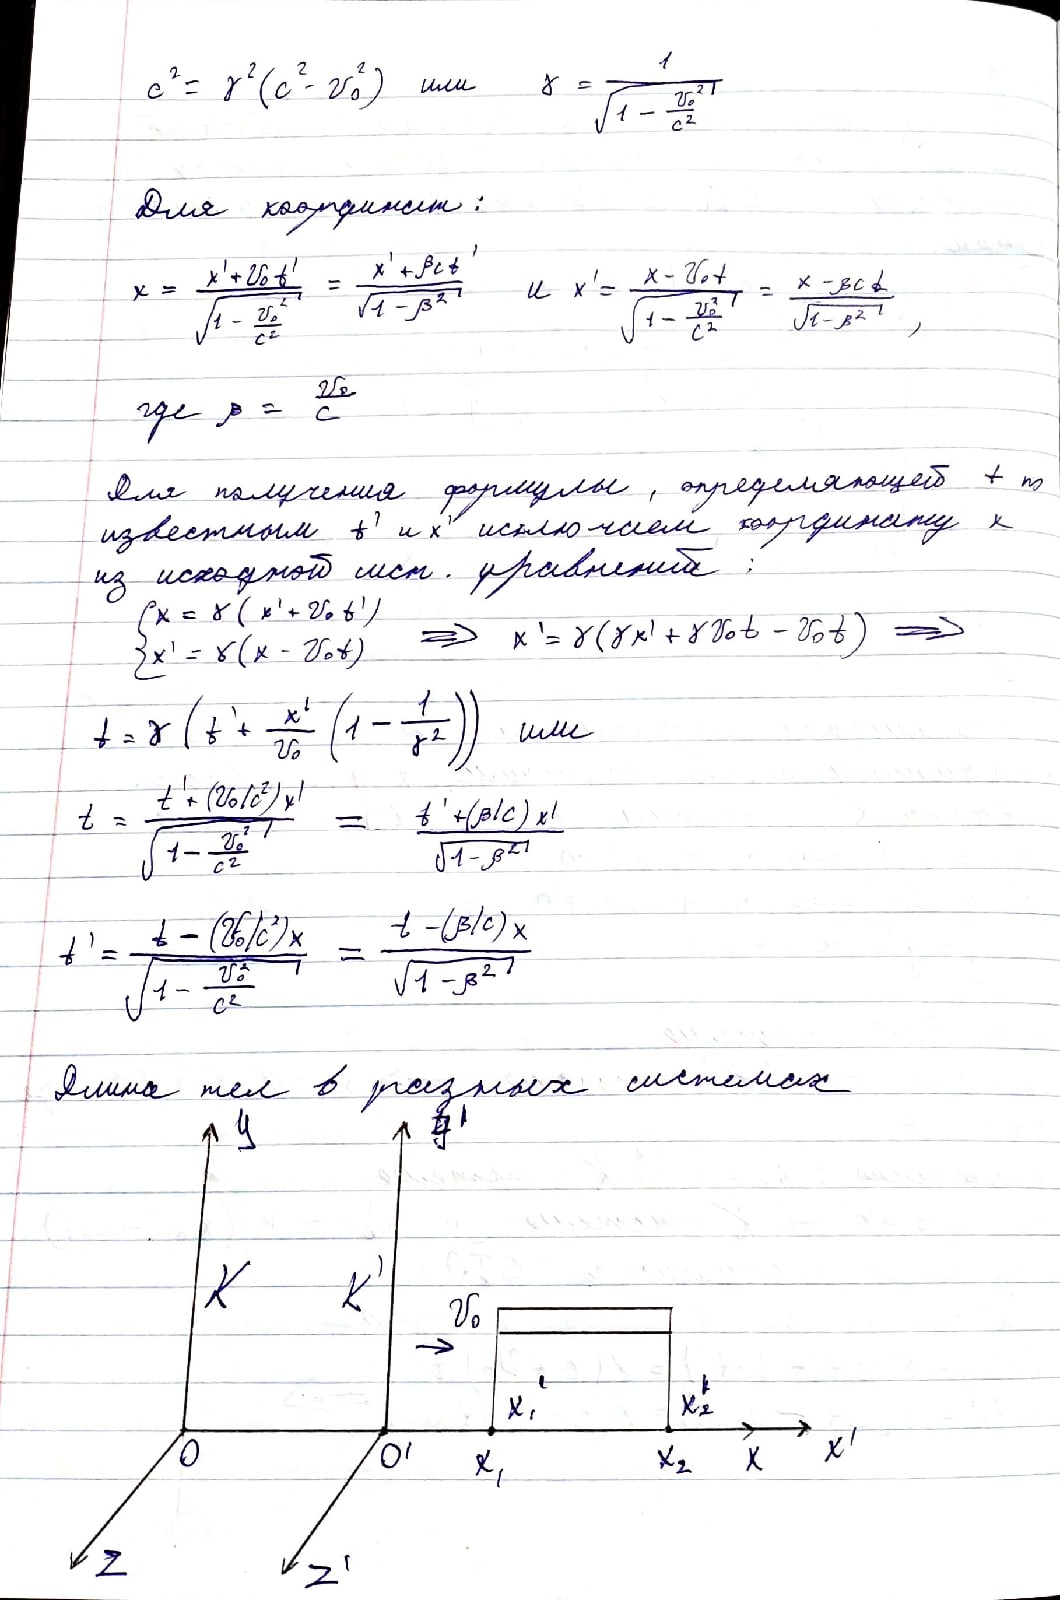 c² = γ²(c² - v₀²) или γ = 1/√(1 - v₀²/c²)
Для координат:
x = (x' + v₀t')/√(1 - v₀²/c²) = (x' + βct')/√(1 - β²) и x' = (x - v₀t)/√(1 - v₀²/c²) = (x - βct)/√(1 - β²),
где β = v₀/c
Для получения формулы, определяющей t по
известным t' и x' исключаем координату x
из исходной сист. уравнений:
{x = γ(x' + v₀t')
{x' = γ(x - v₀t) ⟹ x' = γ(γx' + γv₀t - v₀t) ⟹
t = γ(t' + x'/v₀ (1 - 1/γ²)) или
t = (t' + (v₀/c²)x')/√(1 - v₀²/c²) = (t' + (β/c)x')/√(1 - β²)
t' = (t - (v₀/c²)x)/√(1 - v₀²/c²) = (t - (β/c)x)/√(1 - β²)
Длина тел в разных системах
y y'
K K' v₀
x₁' x₂'
O O' x₁ x₂ x x'
z z'